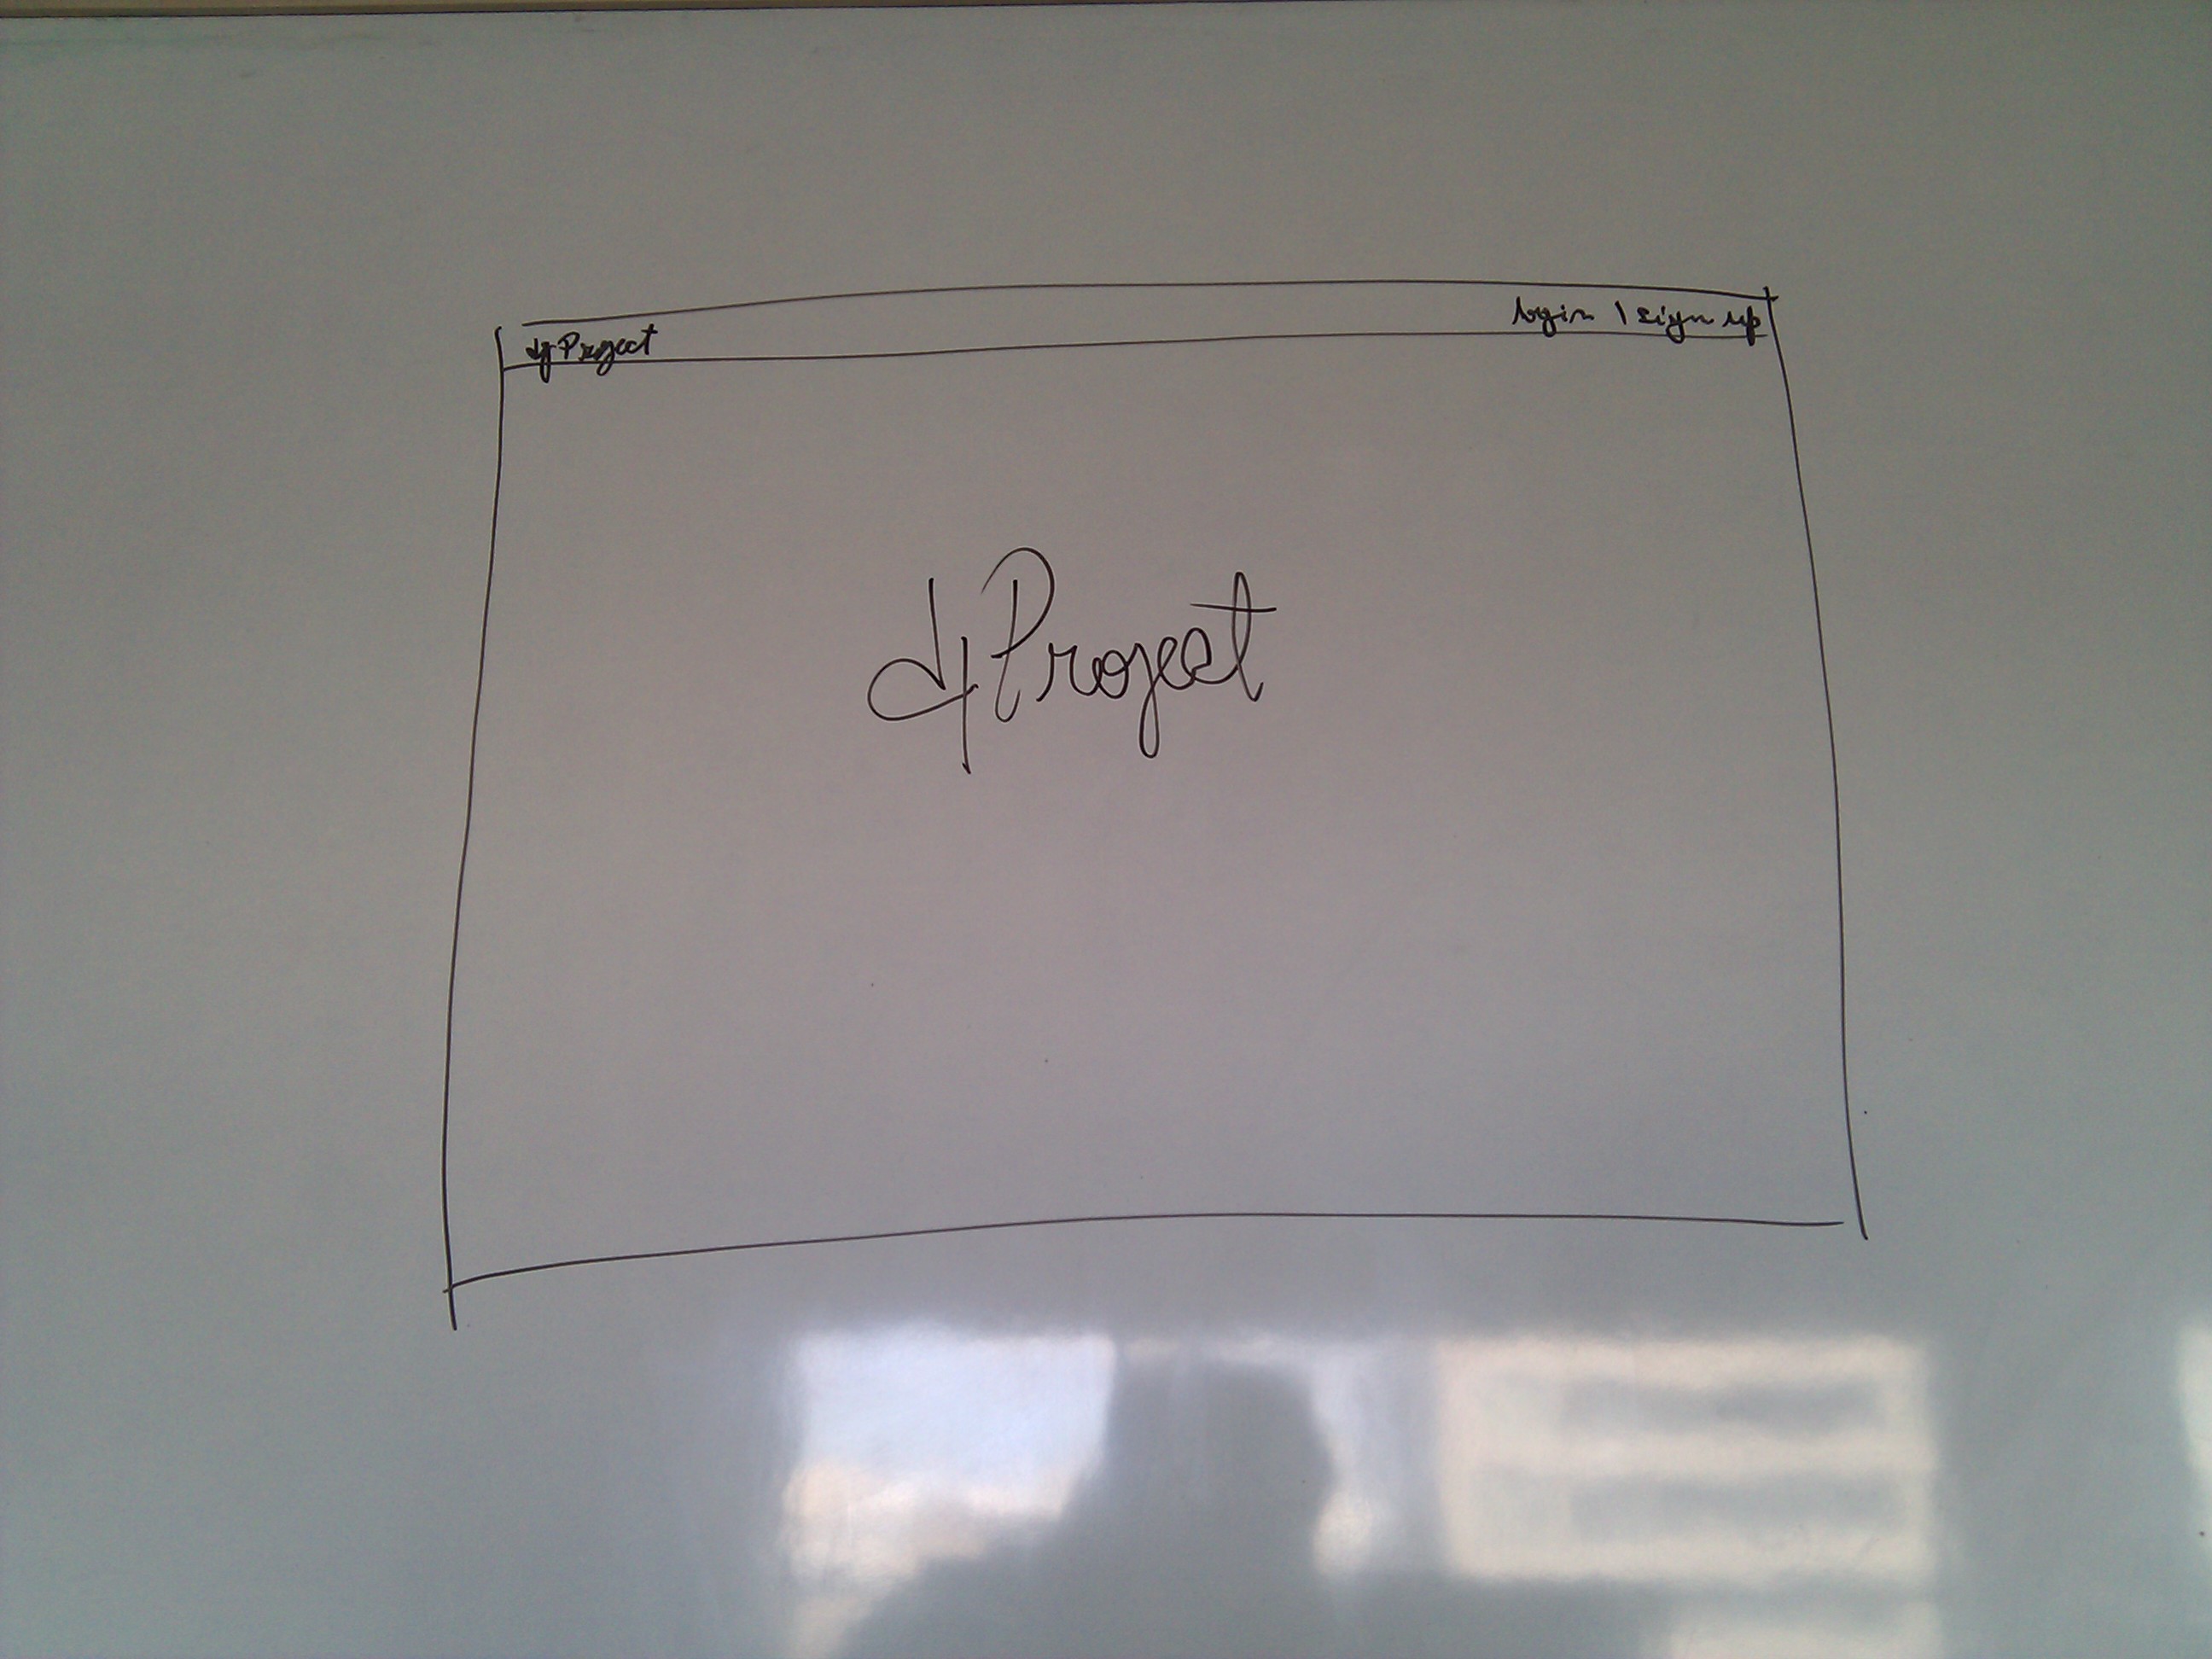 dj Project
login | sign up
djProject